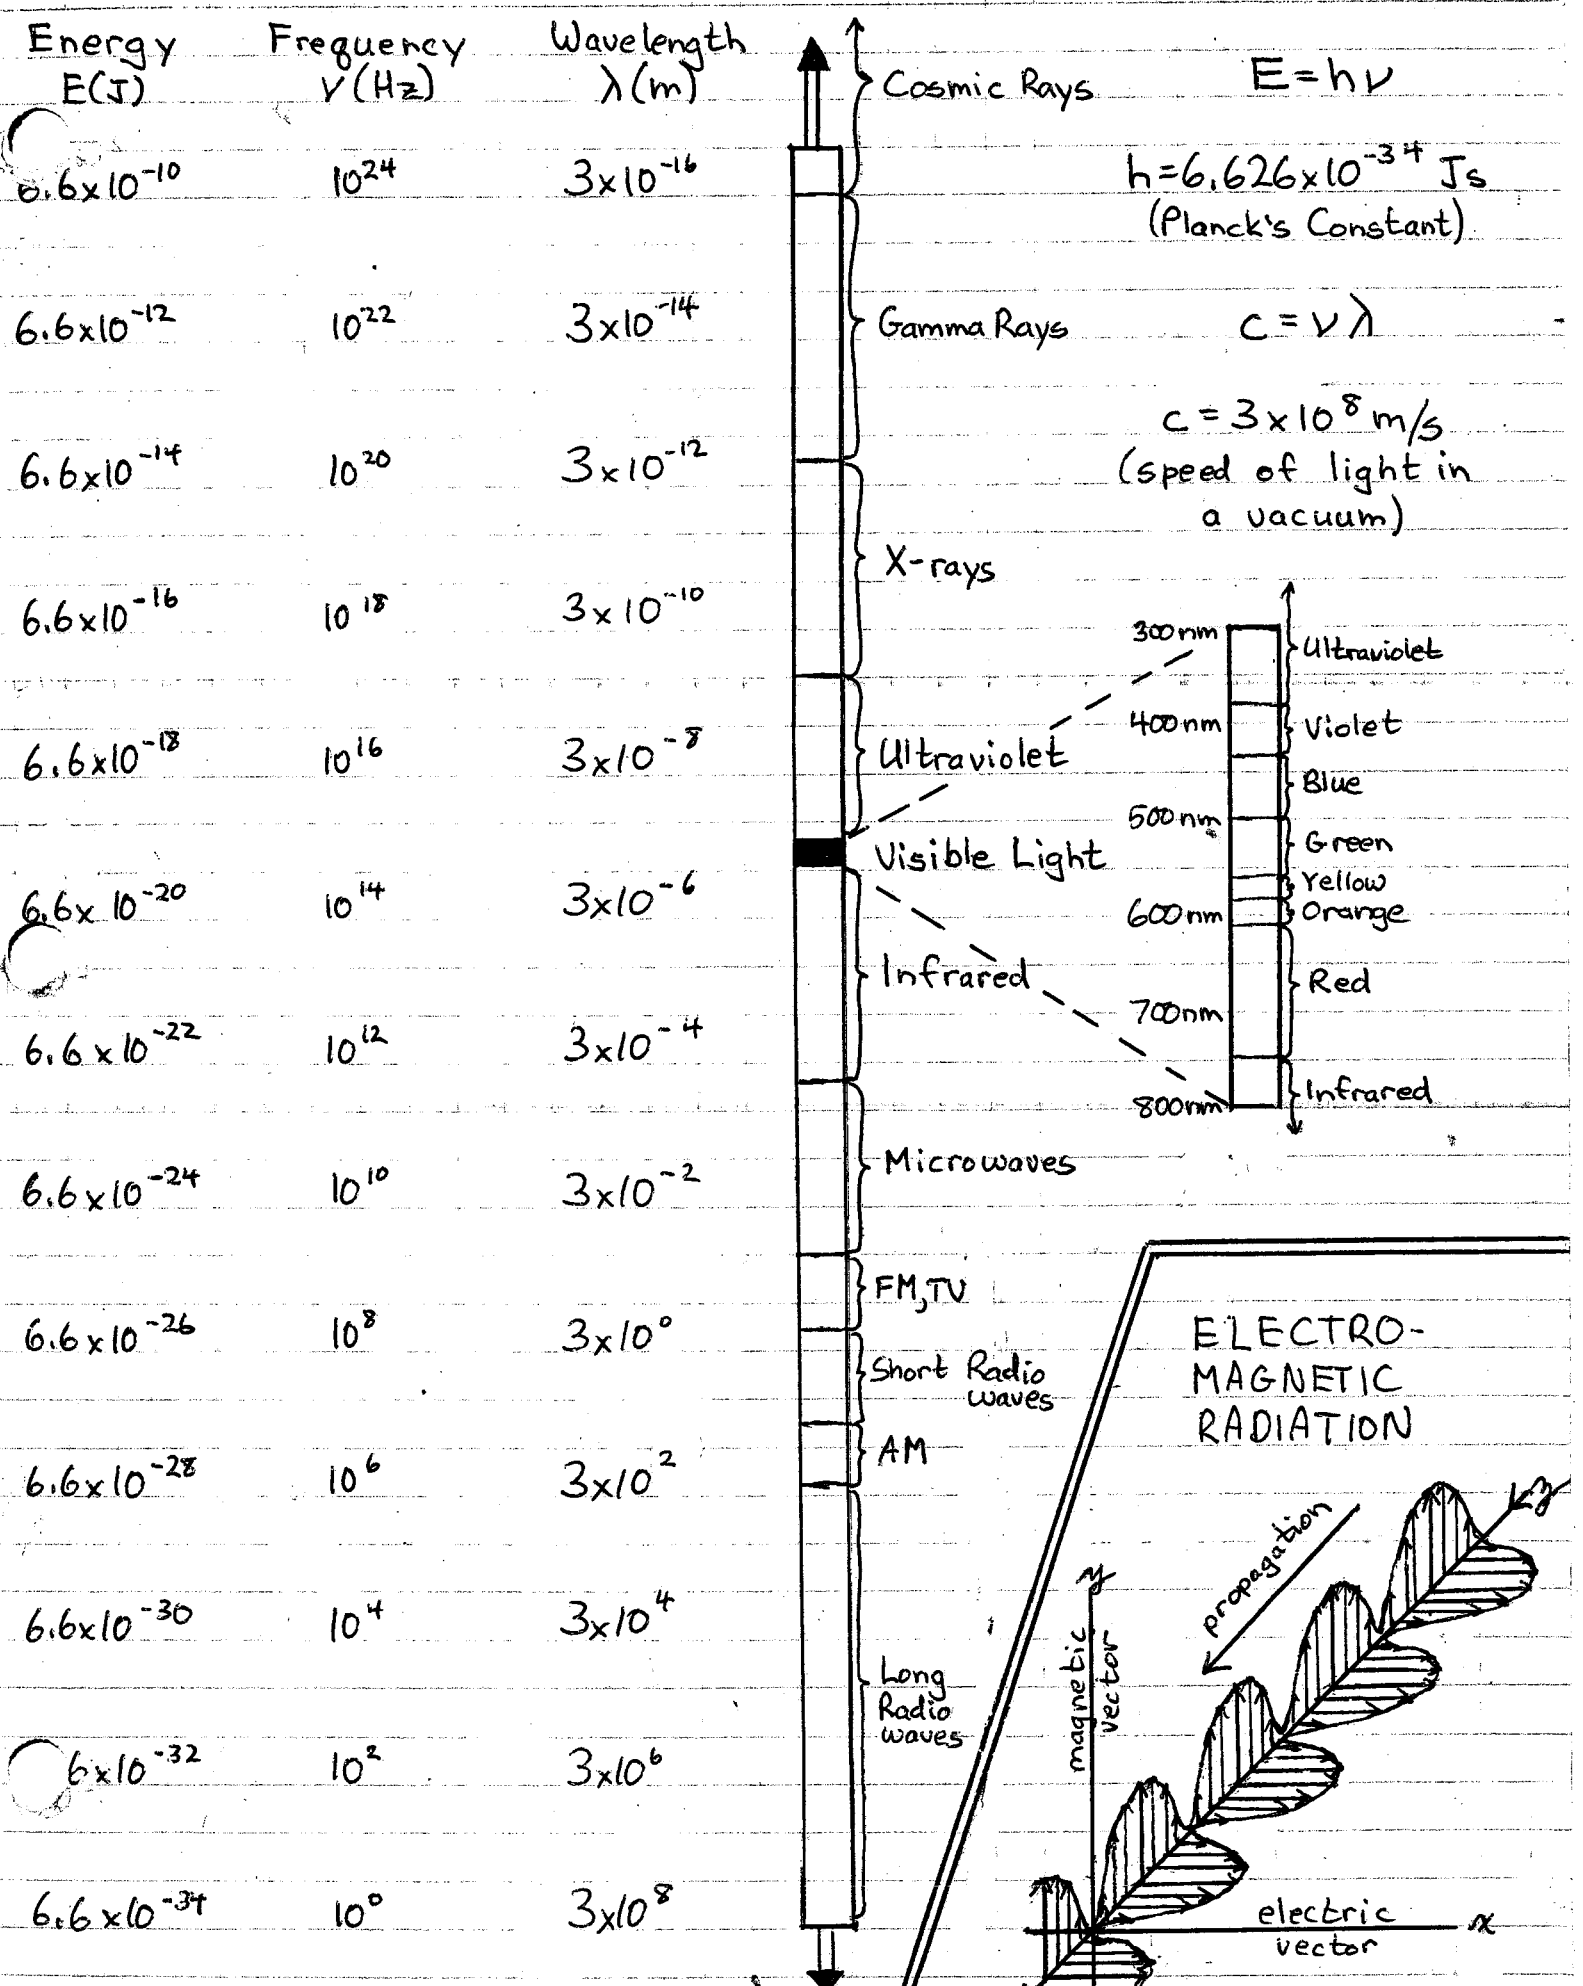 Energy Frequency Wavelength
E(J) ν(Hz) λ(m)
6.6x10⁻¹⁰ 10²⁴ 3x10⁻¹⁶
6.6x10⁻¹² 10²² 3x10⁻¹⁴
6.6x10⁻¹⁴ 10²⁰ 3x10⁻¹²
6.6x10⁻¹⁶ 10¹⁸ 3x10⁻¹⁰
6.6x10⁻¹⁸ 10¹⁶ 3x10⁻⁸
6.6x10⁻²⁰ 10¹⁴ 3x10⁻⁶
6.6x10⁻²² 10¹² 3x10⁻⁴
6.6x10⁻²⁴ 10¹⁰ 3x10⁻²
6.6x10⁻²⁶ 10⁸ 3x10⁰
6.6x10⁻²⁸ 10⁶ 3x10²
6.6x10⁻³⁰ 10⁴ 3x10⁴
6x10⁻³² 10² 3x10⁶
6.6x10⁻³⁴ 10⁰ 3x10⁸
Cosmic Rays
Gamma Rays
X-rays
Ultraviolet
Visible Light
Infrared
Microwaves
FM,TV
Short Radio
waves
AM
Long
Radio
waves
E=hν
h=6.626x10⁻³⁴ Js
(Planck's Constant)
c=νλ
c=3x10⁸ m/s
(speed of light in
a vacuum)
300nm
400nm
500nm
600nm
700nm
800nm
Ultraviolet
Violet
Blue
Green
Yellow
Orange
Red
Infrared
ELECTRO-
MAGNETIC
RADIATION
propagation
z
y
magnetic
vector
electric
vector
x